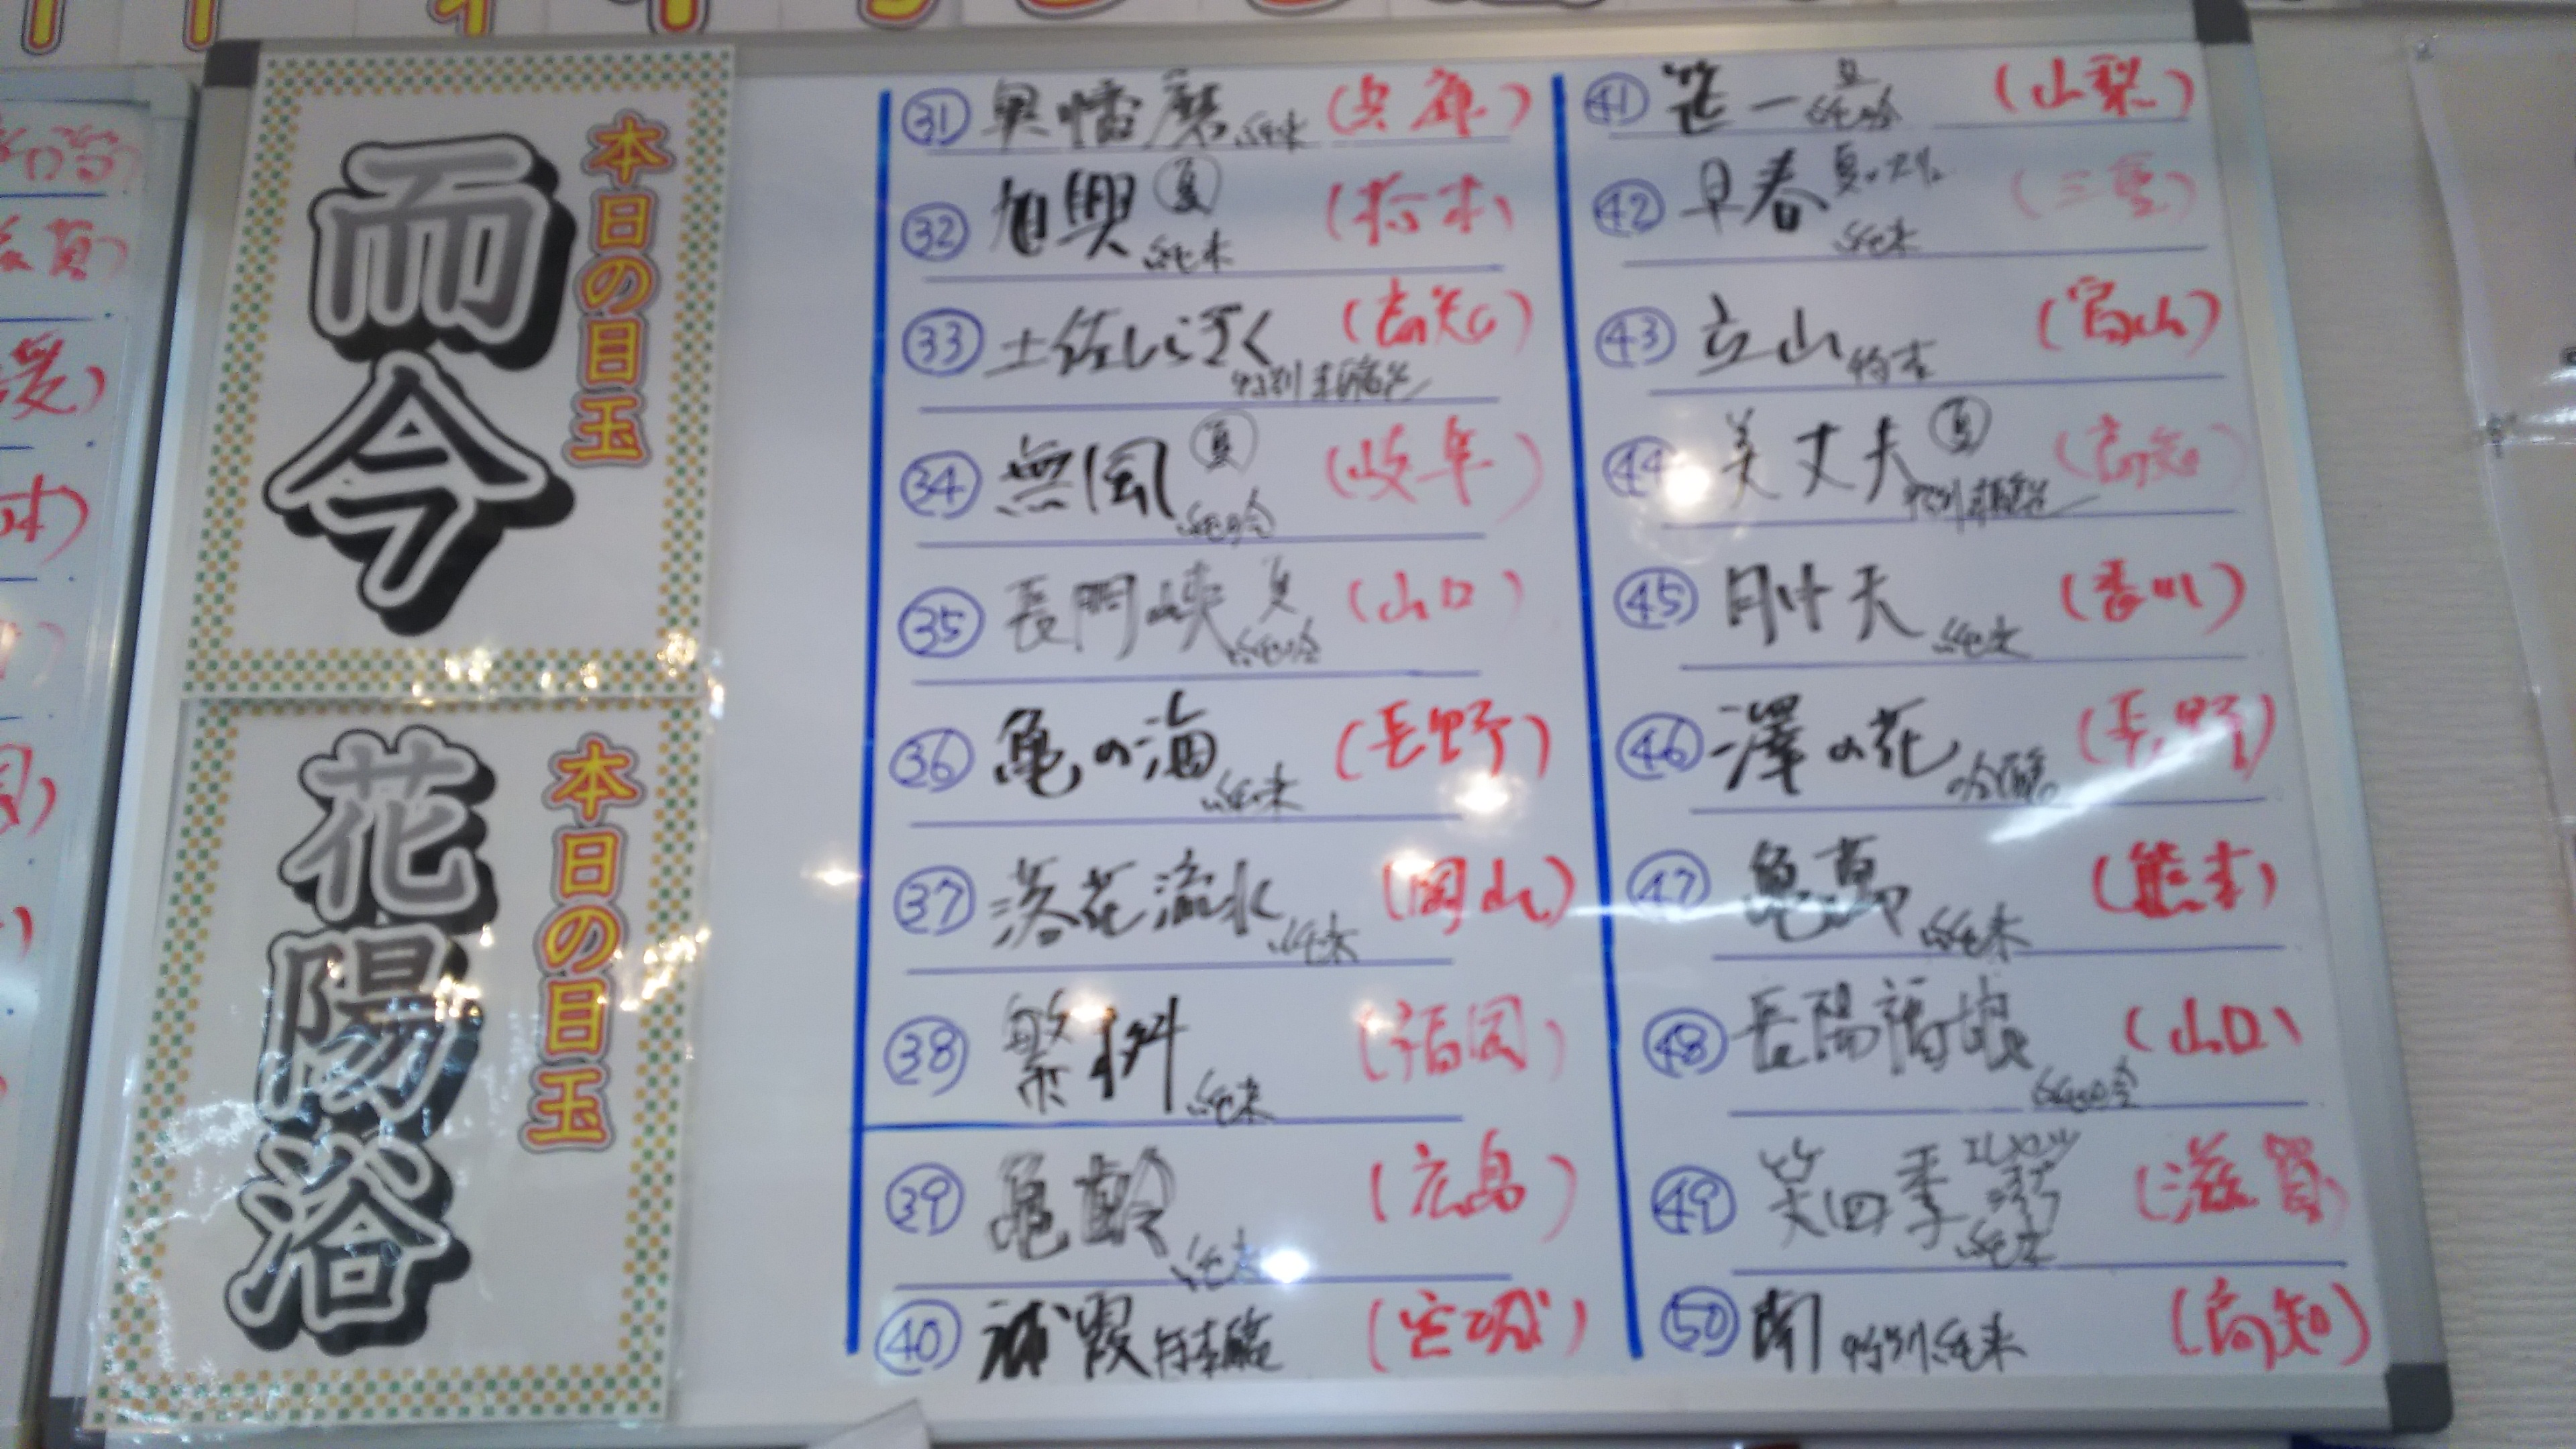 本日の目玉
而今
本日の目玉
花陽浴
㉛ 奥播磨 純米 (兵庫)
㉜ 旭興 夏 純米 (栃木)
㉝ 土佐しらぎく 特別本醸造 (高知)
㉞ 無風 夏 純吟 (岐阜)
㉟ 長門峡 夏 純吟 (山口)
㊱ 亀の海 純米 (長野)
㊲ 落花流水 純米 (岡山)
㊳ 繁桝 純米 (福岡)
㊴ 亀齢 純米 (広島)
㊵ (宮城)
㊶ 笹一 夏 純吟 (山梨)
㊷ 早春 純米 (三重)
㊸ 立山 (富山)
㊹ 美丈夫 夏 特別本醸造 (高知)
㊺ 純米 (香川)
㊻ 澤の花 吟醸 (長野)
㊼ 亀萬 純米 (熊本)
㊽ 長陽福娘 純吟 (山口)
㊾ 笑四季 純米 (滋賀)
㊿ 南 特別純米 (高知)